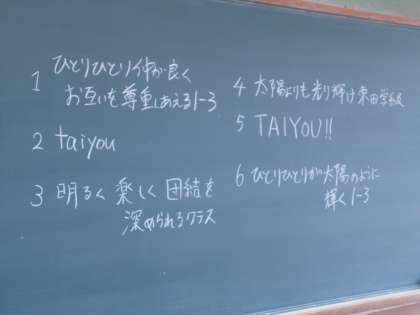 1 ひとりひとり仲が良く
お互いを尊重しあえる1-3
2 taiyou
3 明るく 楽しく 団結を
深められるクラス
4 太陽よりも光り輝け 東田学級
5 TAIYOU!!
6 ひとりひとりが太陽のように
輝く1-3